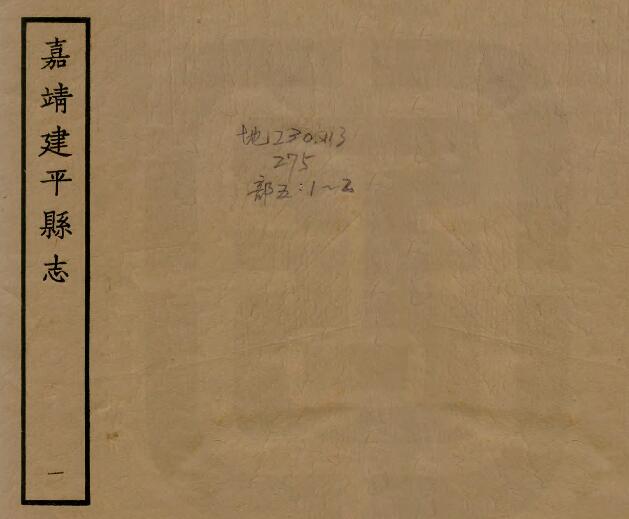 嘉靖建平縣志
一
地230.113
275
部五:1~2